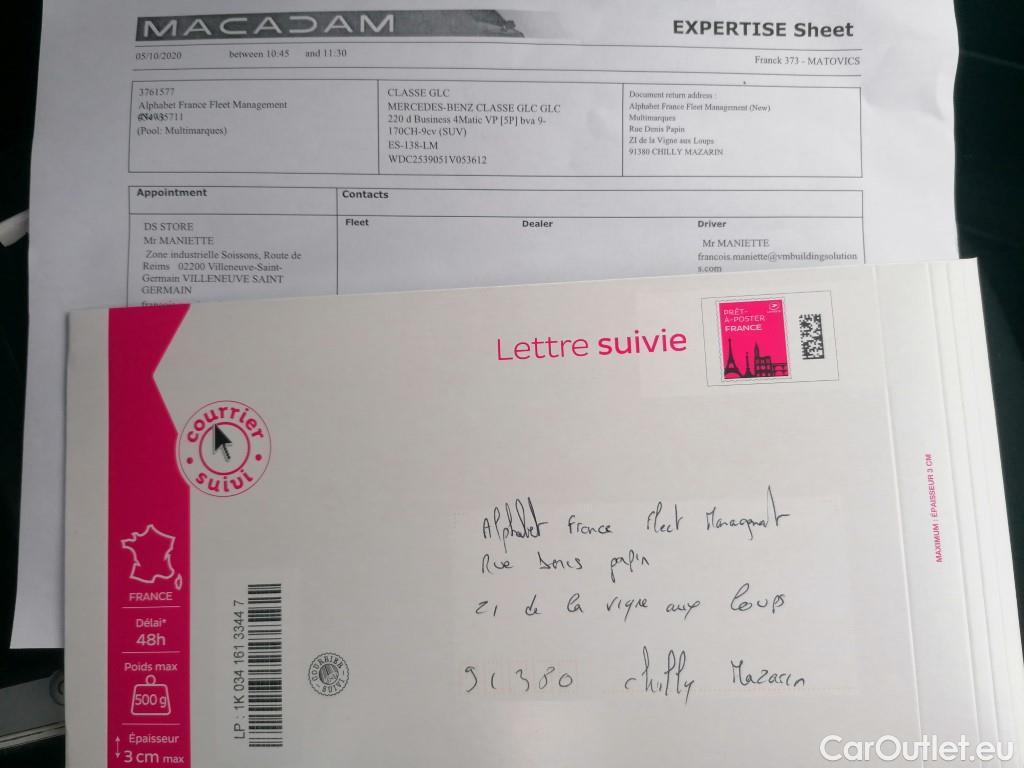 MACADAM
EXPERTISE Sheet
05/10/2020 between 10:45 and 11:30
Franck 373 - MATOVICS
3761577
Alphabet France Fleet Management
(Pool: Multimarques)
CLASSE GLC
MERCEDES-BENZ CLASSE GLC GLC
220 d Business 4Matic VP [5P] bva 9-
170CH-9cv (SUV)
ES-138-LM
WDC2539051V053612
Document return address :
Alphabet France Fleet Management (New)
Multimarques
Rue Denis Papin
ZI de la Vigne aux Loups
91380 CHILLY MAZARIN
Appointment
Contacts
DS STORE
Mr MANIETTE
Zone industrielle Soissons, Route de
Reims 02200 Villeneuve-Saint-
Germain VILLENEUVE SAINT
GERMAIN
Fleet
Dealer
Driver
Mr MANIETTE
francois.maniette@vmbuildingsolution
s.com
Lettre suivie
PRÊT-
À-POSTER
FRANCE
courrier
suivi
FRANCE
Délai*
48h
Poids max
500 g
Épaisseur
3 cm max
LP : 1K 034 161 3344 7
COURRIER
SUIVI
Alphabet France Fleet Managment
Rue Denis papin
ZI de la vigne aux loups
91380 Chilly Mazarin
MAXIMUM : ÉPAISSEUR 3 CM
CarOutlet.eu